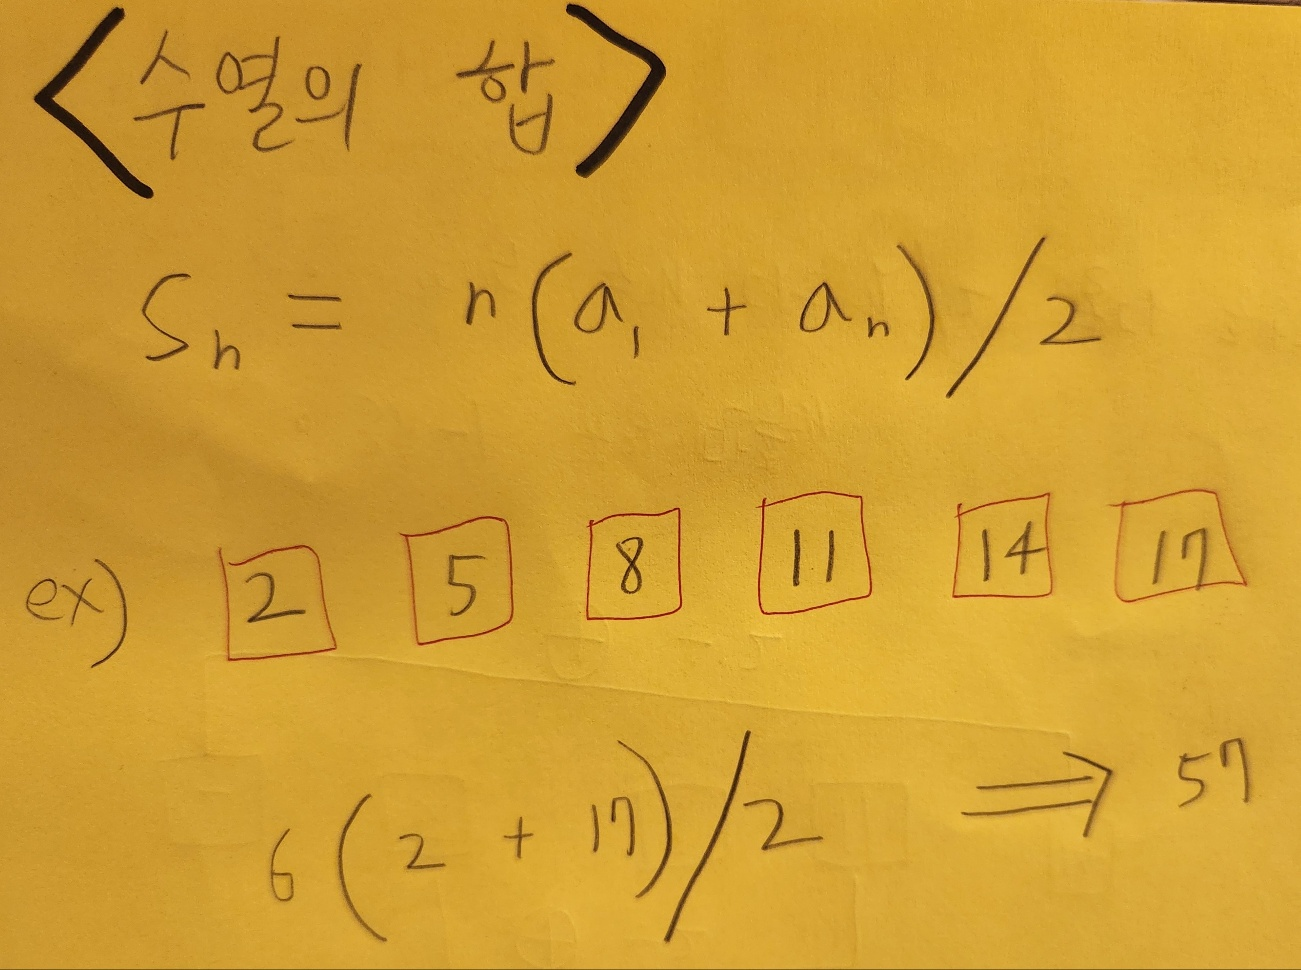 <수열의 합>
Sn = n(a1 + an)/2
ex) 2 5 8 11 14 17
6(2 + 17)/2 ⇒ 57